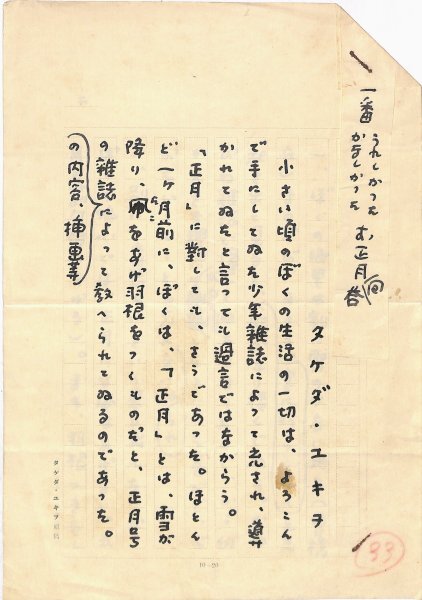 一番 うれしかった かなしかった お正月 回答
タケダ・ユキヲ
小さい頃のぼくの生活の一切は、よろこん
で手にしてゐた少年雑誌によって充され、導
かれてゐたと言っても過言ではなからう。
「正月」に對しても、さうであった。ほとん
ど一ケ月前に、ぼくは、「正月」とは、雪が
降り、凧をあげ羽根をつくものだと、正月号
の雑誌によって教へられてゐるのであった。
の内容、挿画等
タケダ・ユキヲ
10—20
33